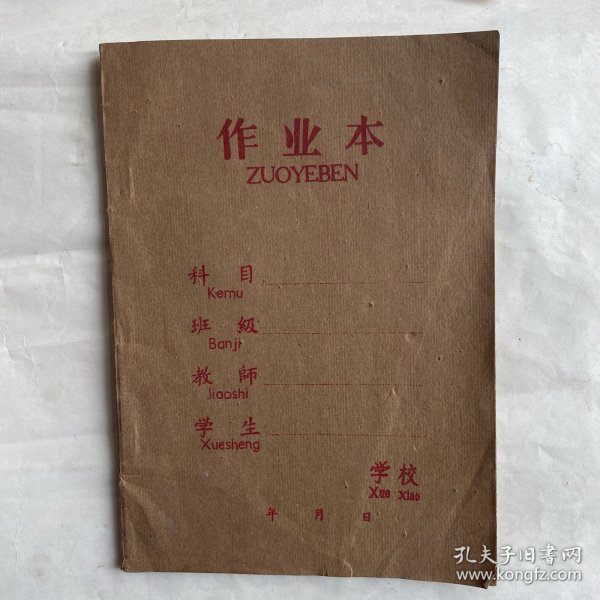 作业本
ZUOYEBEN
科目
Kemu
班級
Banji
教師
Jiaoshi
学生
Xuesheng
学校
Xue xiao
年 月 日
孔夫子旧書网
www.kongfz.com